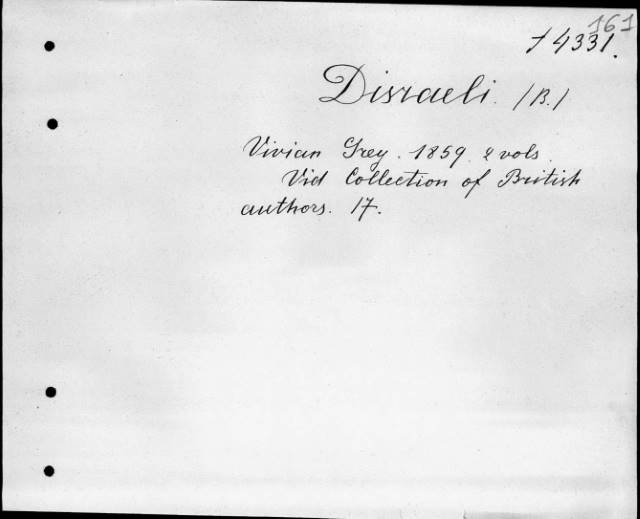 161
f 4331.
Disraeli. /B./
Vivian Grey. 1859. 2 vols.
Vid Collection of British
authors. 17.